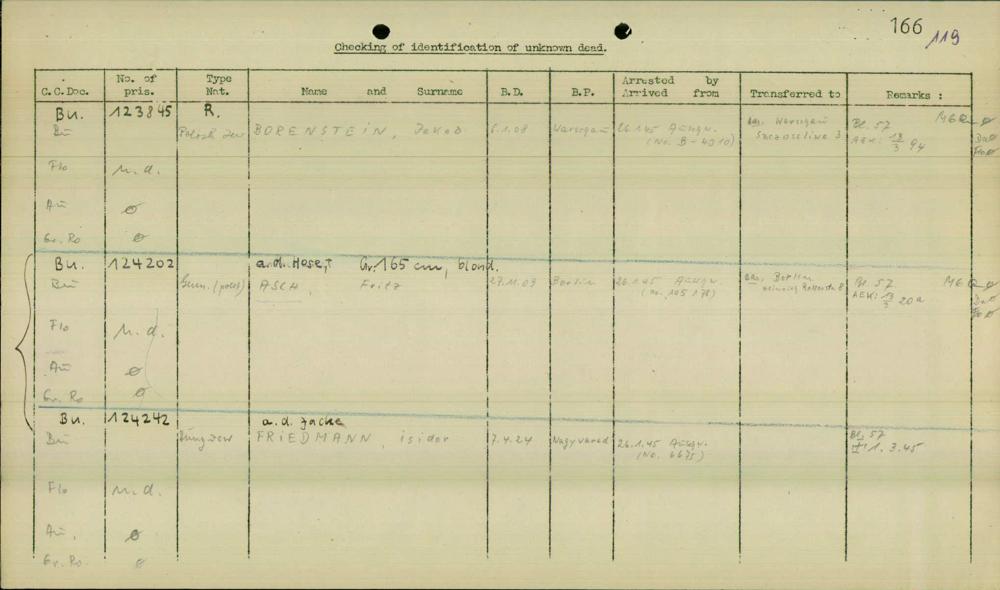 166
119
Checking of identification of unknown dead.
C.C.Doc. No. of pris. Type Nat. Name and Surname B.D. B.P. Arrested by Arrived from Transferred to Remarks :
Bu. 123845 R.
Bu Polish Jew BORENSTEIN, Jakob 5.1.09 Warschau 26.1.45 Auschw. Warschau Bl. 57
(No. B-4010) 3 AEK: 13/3 94
Flo n.d.
Au ø
Gr. Ro ø
Bu. 124202 a.d. Hose, Gr. 165 cm, blond.
Bu Germ. (polit) ASCH, Fritz 27.11.09 Berlin 26.1.45 Auschw. Berlin Bl. 57
(No. 105178) AEK: 13/3 20a
Flo n.d.
Au ø
Gr. Ro ø
Bu. 124242 a.d. Jacke
Bu Ung Jew FRIEDMANN, Isidor 7.4.24 Nagyvarad 26.1.45 Auschw. Bl. 57
(No. 6675) 1. 3. 45
Flo n.d.
Au. ø
Gr. Ro. ø